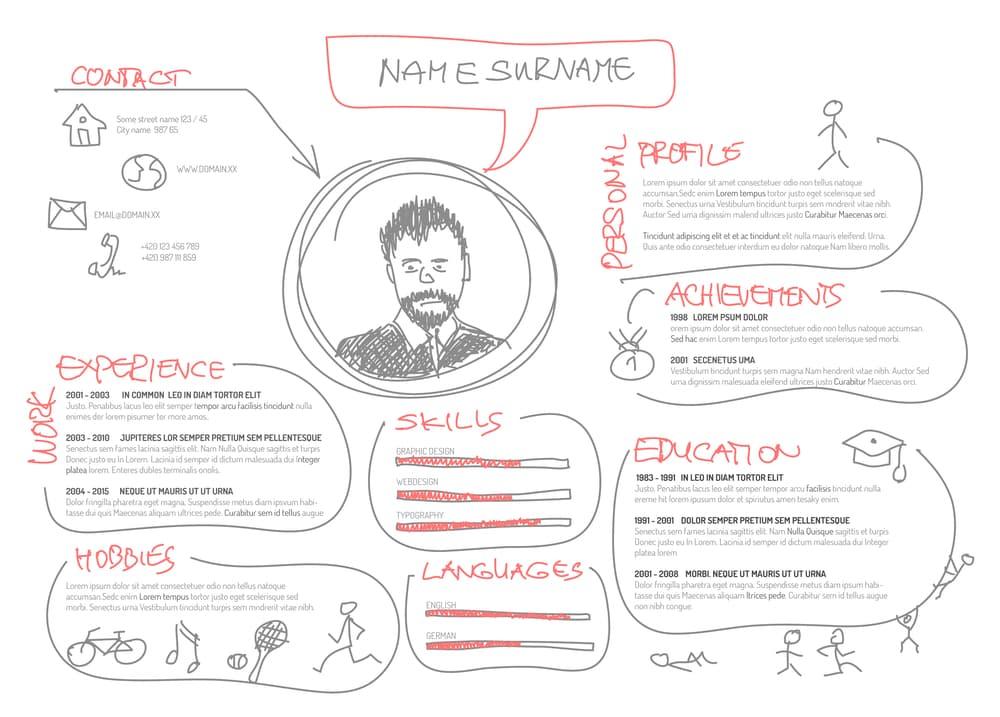 NAME SURNAME
CONTACT
Some street name 123 / 45
City name 987 65
WWW.DOMAIN.XX
EMAIL@DOMAIN.XX
+420 123 456 789
+420 987 111 859
PERSONAL PROFILE
Lorem ipsum dolor sit amet consectetuer odio non tellus natoque
accumsan.Sedc enim Lorem tempus tortor justo eget scelerisque sed
morbi. Senectus urna Vestibulum tincidunt turpis sem mndrerit vitae nibh.
Auctor Sed urna dignissim malend ultrices justo Curabitur Maecenas orci.
Tincidunt adipiscing elit et et ac tincidunt elit nulla mauris eleifend. Urna.
Quis ante odio consectetuer interdum eu dolor natoque Nam libero mollis.
ACHIEVEMENTS
1998 LOREM PSUM DOLOR
orem ipsum dolor sit amet consectetuer odio non tellus natoque accumsan.
Sed hac enim Lorem tempus tortor justo eget scelerisque sed morbi.
2001 SECENETUS UMA
Vestibulum tincidunt turpis sem magna Nam hendrerit vitae nibh. Auctor Sed
urna dignissim malesuada eleifend ultrices justo Curabitur Maecenas orci.
1
WORK EXPERIENCE
2001 - 2003 IN COMMON LEO IN DIAM TORTOR ELIT
Justo. Penatibus lacus leo elit semper tempor arcu facilisis tincidunt nulla
enimes der lorem pisumer tor more amos.
2003 - 2010 JUPITERES LOR SEMPER PRETIUM SEM PELLENTESQUE
Senectus sem fames lacinia sagittis elit. Nam Nulla Quisque sagittis et turpis
Donec justo eu In Lorem. Lacinia id semper id dictum malesuada dui Integer
platea lorem. Enteres dubles terminalis onolis.
2004 - 2015 NEQUE UT MAURIS UT UT URNA
Dolor fringilla pharetra eget magna. Suspendisse metus diam ipsvum habi-
tasse dui quis Maecenas aliquam ultrices pede. Curabitur sem id tellus augue
SKILLS
GRAPHIC DESIGN
WEBDESIGN
TYPOGRAPHY
EDUCATION
1983 - 1991 IN LEO IN DIAM TORTOR ELIT
Justo. Penatibus lacus leo elit semper tempor arcu facilisis tincidunt nulla
ereme hit lorem ipusum dolor et spiriutus amen tesaky enim.
1991 - 2001 DOLOR SEMPER PRETIUM SEM PELLENTESQUE
Senectus sem fames lacinia sagittis elit. Nam Nulla Quisque sagittis et turpis
Donec justo eu In Lorem. Lacinia id semper id dictum malesuada dui Integer
platea lorem
2001 - 2008 MORBI. NEQUE UT MAURIS UT UT URNA
Dolor fringilla pharetra eget magna. Suspendisse metus diam ipsum habi-
tasse dui quis Maecenas aliquam ltrices pede. Curabitur sem id tellus augue
non nibh congue.
HOBBIES
Lorem ipsum dolor sit amet consectetuer odio non tellus natoque
accumsan.Sedc enim Lorem tempus tortor justo eget scelerisque sed
morbi. Senectus urna Vestibulum tincidunt turpis sem mndrerit vitae nibh.
LANGUAGES
ENGLISH
GERMAN